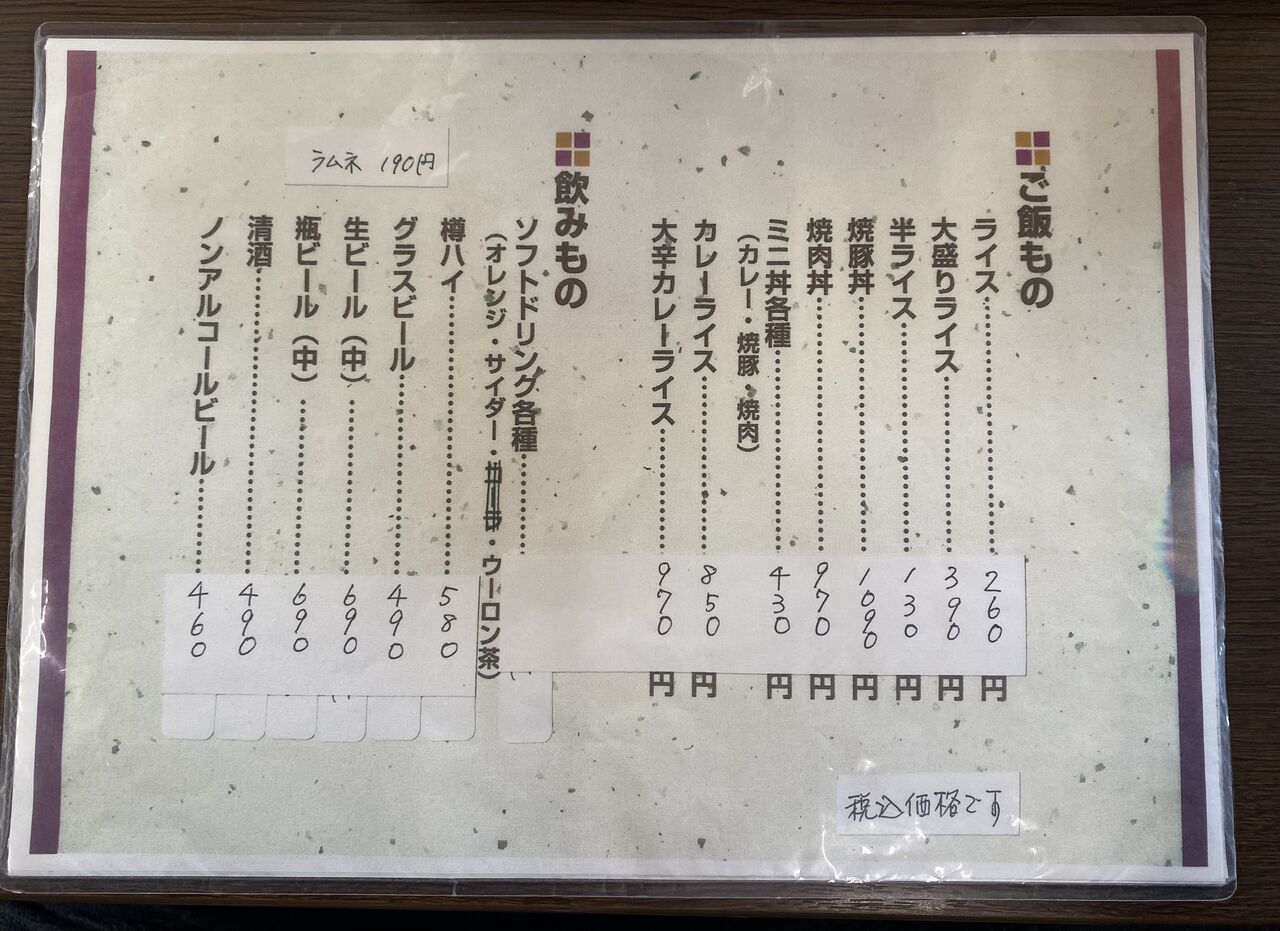 ご飯もの
ライス 260円
大盛りライス 390円
半ライス 130円
焼豚丼 1090円
焼肉丼 970円
ミニ丼各種 430円
（カレー・焼豚・焼肉）
カレーライス 850円
大辛カレーライス 970円
飲みもの
ソフトドリング各種
（オレンジ・サイダー・コーラ・ウーロン茶）
樽ハイ 580
グラスビール 490
生ビール（中） 690
瓶ビール（中） 690
清酒 490
ノンアルコールビール 460
ラムネ 190円
税込価格です